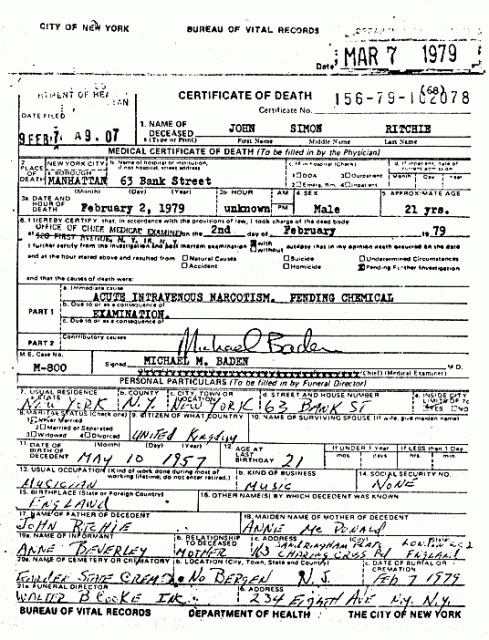 CITY OF NEW YORK BUREAU OF VITAL RECORDS
Date: MAR 7 1979
CERTIFICATE OF DEATH
Certificate No. 156-79-102078
(68)
DATE FILED
9 FEB 7 A9.07
1. NAME OF DECEASED (Type or Print) JOHN SIMON RITCHIE
First Name Middle Name Last Name
MEDICAL CERTIFICATE OF DEATH (To be filled in by the Physician)
2. PLACE OF DEATH NEW YORK CITY a. BOROUGH MANHATTAN b. Name of hospital or institution, if not hospital, street address 63 Bank Street
3a. DATE AND HOUR OF DEATH (Month) (Day) (Year) February 2, 1979 3b. HOUR unknown AM PM 4. SEX Male 5. APPROXIMATE AGE 21 yrs.
6. I HEREBY CERTIFY that, in accordance with the provisions of law, I took charge of the dead body
at OFFICE OF CHIEF MEDICAL EXAMINER 520 FIRST AVENUE, N. Y. 16, N. Y. this 2nd day of February 1979
I further certify from the investigation and post mortem examination with without autopsy that in my opinion death occurred on the date
and at the hour stated above and resulted from Natural Causes Suicide Undetermined Circumstances
Accident Homicide Pending Further Investigation
and that the causes of death were:
PART 1 a. Immediate cause ACUTE INTRAVENOUS NARCOTISM. PENDING CHEMICAL
b. Due to or as a consequence of EXAMINATION.
c. Due to or as a consequence of
PART 2 Contributory causes
Michael Baden
M.E. Case No. M-800 Signed MICHAEL M. BADEN M.D.
(Chief) (Medical Examiner)
PERSONAL PARTICULARS (To be filled in by Funeral Director)
7. USUAL RESIDENCE a. STATE NEW YORK b. COUNTY N.Y. c. CITY, TOWN OR LOCATION NEW YORK d. STREET AND HOUSE NUMBER 63 BANK ST e. INSIDE CITY LIMITS YES NO
8. MARITAL STATUS (Check one) 1 Never Married 2 Married or Separated 3 Widowed 4 Divorced 9. CITIZEN OF WHAT COUNTRY UNITED Kingdom 10. NAME OF SURVIVING SPOUSE (If wife, give maiden name)
11. DATE OF BIRTH OF DECEDENT (Month) (Day) (Year) MAY 10 1957 12. AGE AT LAST BIRTHDAY 21 If UNDER 1 Year mos. days If LESS than 1 Day hrs. min.
13. USUAL OCCUPATION (Kind of work done during most of working lifetime; do not enter retired.) MUSICIAN b. KIND OF BUSINESS MUSIC 14. SOCIAL SECURITY NO. NONE
15. BIRTHPLACE (State or Foreign Country) ENGLAND 16. OTHER NAME(S) BY WHICH DECEDENT WAS KNOWN
17. NAME OF FATHER OF DECEDENT JOHN RITCHIE 18. MAIDEN NAME OF MOTHER OF DECEDENT ANNE Mc DONALD
19a. NAME OF INFORMANT ANNE BEVERLEY b. RELATIONSHIP TO DECEASED MOTHER c. ADDRESS (City) (State) SANDRINGHAM FLATS LONDON CHARING CROSS Rd ENGLAND
20a. NAME OF CEMETERY OR CREMATORY GARDEN STATE CREM. b. LOCATION (City, Town, State and Country) No BERGEN N.J. c. DATE OF BURIAL OR CREMATION FEB 7 1979
21a. FUNERAL DIRECTOR WALTER B COOKE INC. b. ADDRESS 234 EIGHTH AVE N.Y. N.Y.
BUREAU OF VITAL RECORDS DEPARTMENT OF HEALTH THE CITY OF NEW YORK